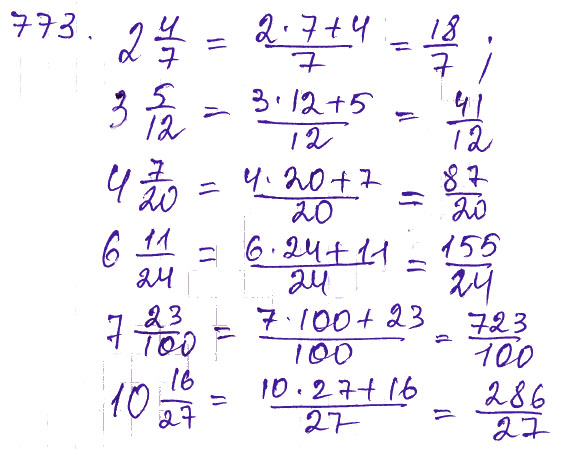 773. 2 4/7 = (2·7+4)/7 = 18/7 ;
3 5/12 = (3·12+5)/12 = 41/12
4 7/20 = (4·20+7)/20 = 87/20
6 11/24 = (6·24+11)/24 = 155/24
7 23/100 = (7·100+23)/100 = 723/100
10 16/27 = (10·27+16)/27 = 286/27